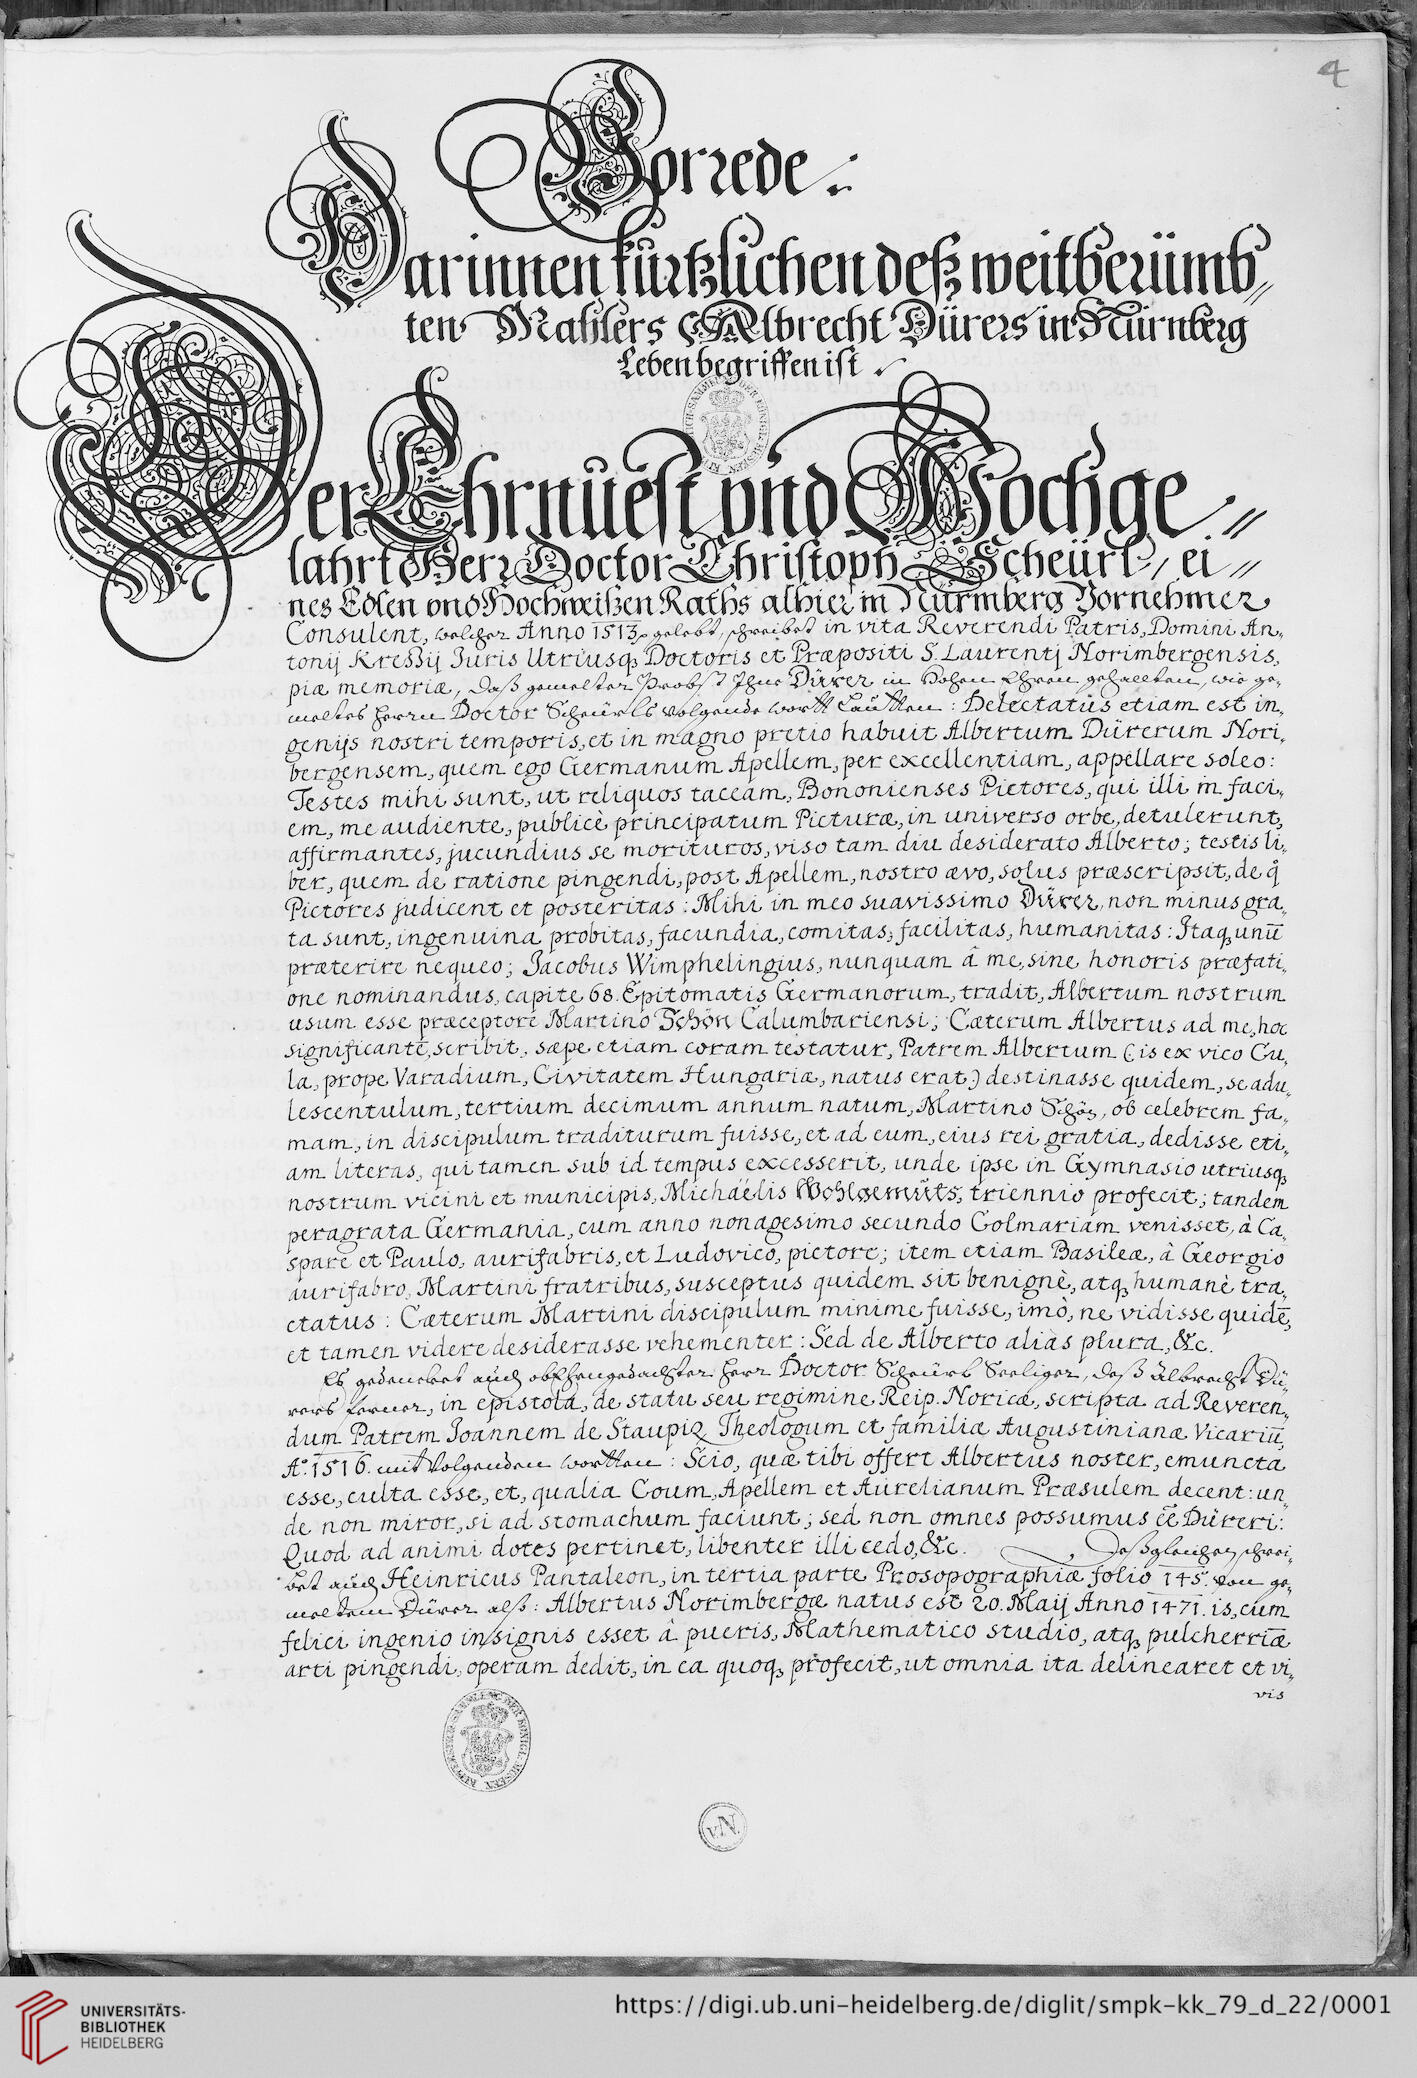 4
Vorrede.
Darinnen kürtzlichen deß weitberümb„
ten Mahlers Albrecht Dürers in Nürnberg
Leben begriffen ist.
Der Ehrnuest vnd Hochge„
lahrt Herr Doctor Christoph Scheürl, ei„
nes Edlen vnd Hochweißen Raths alhier in Nürmberg Vornehmer
Consulent, welcher Anno 1513 gelebt, schreibet in vita Reverendi Patris, Domini An„
tonij Kreßij Juris Utriusq, Doctoris et Præpositi S. Laurentj Norimbergensis,
piæ memoriæ, daß gemelter Probst Ihne Dürer in Hohen Ehren gehallten, wie ge„
meltes Herrn Doctor Scheürls volgende wortt lautten: Delectatus etiam est in„
genijs nostri temporis, et in magno pretio habuit Albertum Dürerum Nori„
bergensem, quem ego Germanum Apellem, per excellentiam, appellare soleo:
Testes mihi sunt, ut reliquos taceam, Bononienses Pictores, qui illi in faci„
em, me audiente, publicè principatum Picturæ, in universo orbe, detulerunt,
affirmantes, jucundius se morituros, viso tam diu desiderato Alberto; testis li„
ber, quem de ratione pingendi, post Apellem, nostro ævo, solus præscripsit, de q̊
Pictores judicent et posteritas: Mihi in meo suavissimo Dürer, non minus gra„
ta sunt, ingenuina probitas, facundia, comitas, facilitas, humanitas: Itaq, unū
præterire nequeo; Jacobus Wimphelingius, nunquam â me, sine honoris præfati„
one nominandus, capite 68. Epitomatis Germanorum, tradit, Albertum nostrum
usum esse præceptorē Martino Schön Calumbariensi; Cæterum Albertus ad me, hoc
significantē, scribit, sæpe etiam coram testatur, Patrem Albertum (is ex vico Cu„
la, prope Varadium, Civitatem Hungariæ, natus erat) destinasse quidem, se adu„
lescentulum, tertium decimum annum natum, Martino Schön, ob celebrem fa„
mam, in discipulum traditurum fuisse, et ad eum, eius rei gratia, dedisse eti„
am literas, qui tamen sub id tempus excesserit, unde ipse in Gymnasio utriusq,
nostrum vicini et municipis, Michaëlis Wohlgemüts, triennio profecit; tandem
peragrata Germania, cum anno nonagesimo secundo Colmariam venisset, à Ca„
spare et Paulo, aurifabris, et Ludovico, pictore; item etiam Basileæ, â Georgio
aurifabro, Martini fratribus, susceptus quidem sit benignè, atq, humanè tra„
ctatus: Cæterum Martini discipulum minime fuisse, imò, ne vidisse quidē,
et tamen videre desiderasse vehementer: Sed de Alberto aliàs plura, &c.
Es gedencket auch obEhrngedachter Herr Doctor Scheürl Seeliger, deß Albrecht Dü„
rers ferner, in epistola, de statu seu regimine Reip. Noricæ, scripta ad Reveren„
dum Patrem Joannem de Staupiz Theologum et familiæ Augustinianæ Vicariū,
Aº. 1516. mit Volgenden wortten: Scio, quæ tibi offert Albertus noster, emuncta
esse, culta esse, et, qualia Coum, Apellem et Aurelianum Præsulem decent: un„
de non miror, si ad stomachum faciunt; sed non omnes possumus eē Düreri:
Quod ad animi dotes pertinet, libenter illi cedo, &c. Deßgleichen schrei„
bet auch Heinricus Pantaleon, in tertia parte Prosopographiæ folio 145. von ge„
meltem Dürer alß: Albertus Norimbergæ natus est 20. Maij Anno 1471. is, cum
felici ingenio insignis esset â pueris, Mathematico studio, atq, pulcherriæ
arti pingendi, operam dedit, in ea quoq, profecit, ut omnia ita delinearet et vi„
vis
v.N.
UNIVERSITÄTS-
BIBLIOTHEK
HEIDELBERG
https://digi.ub.uni-heidelberg.de/diglit/smpk-kk_79_d_22/0001